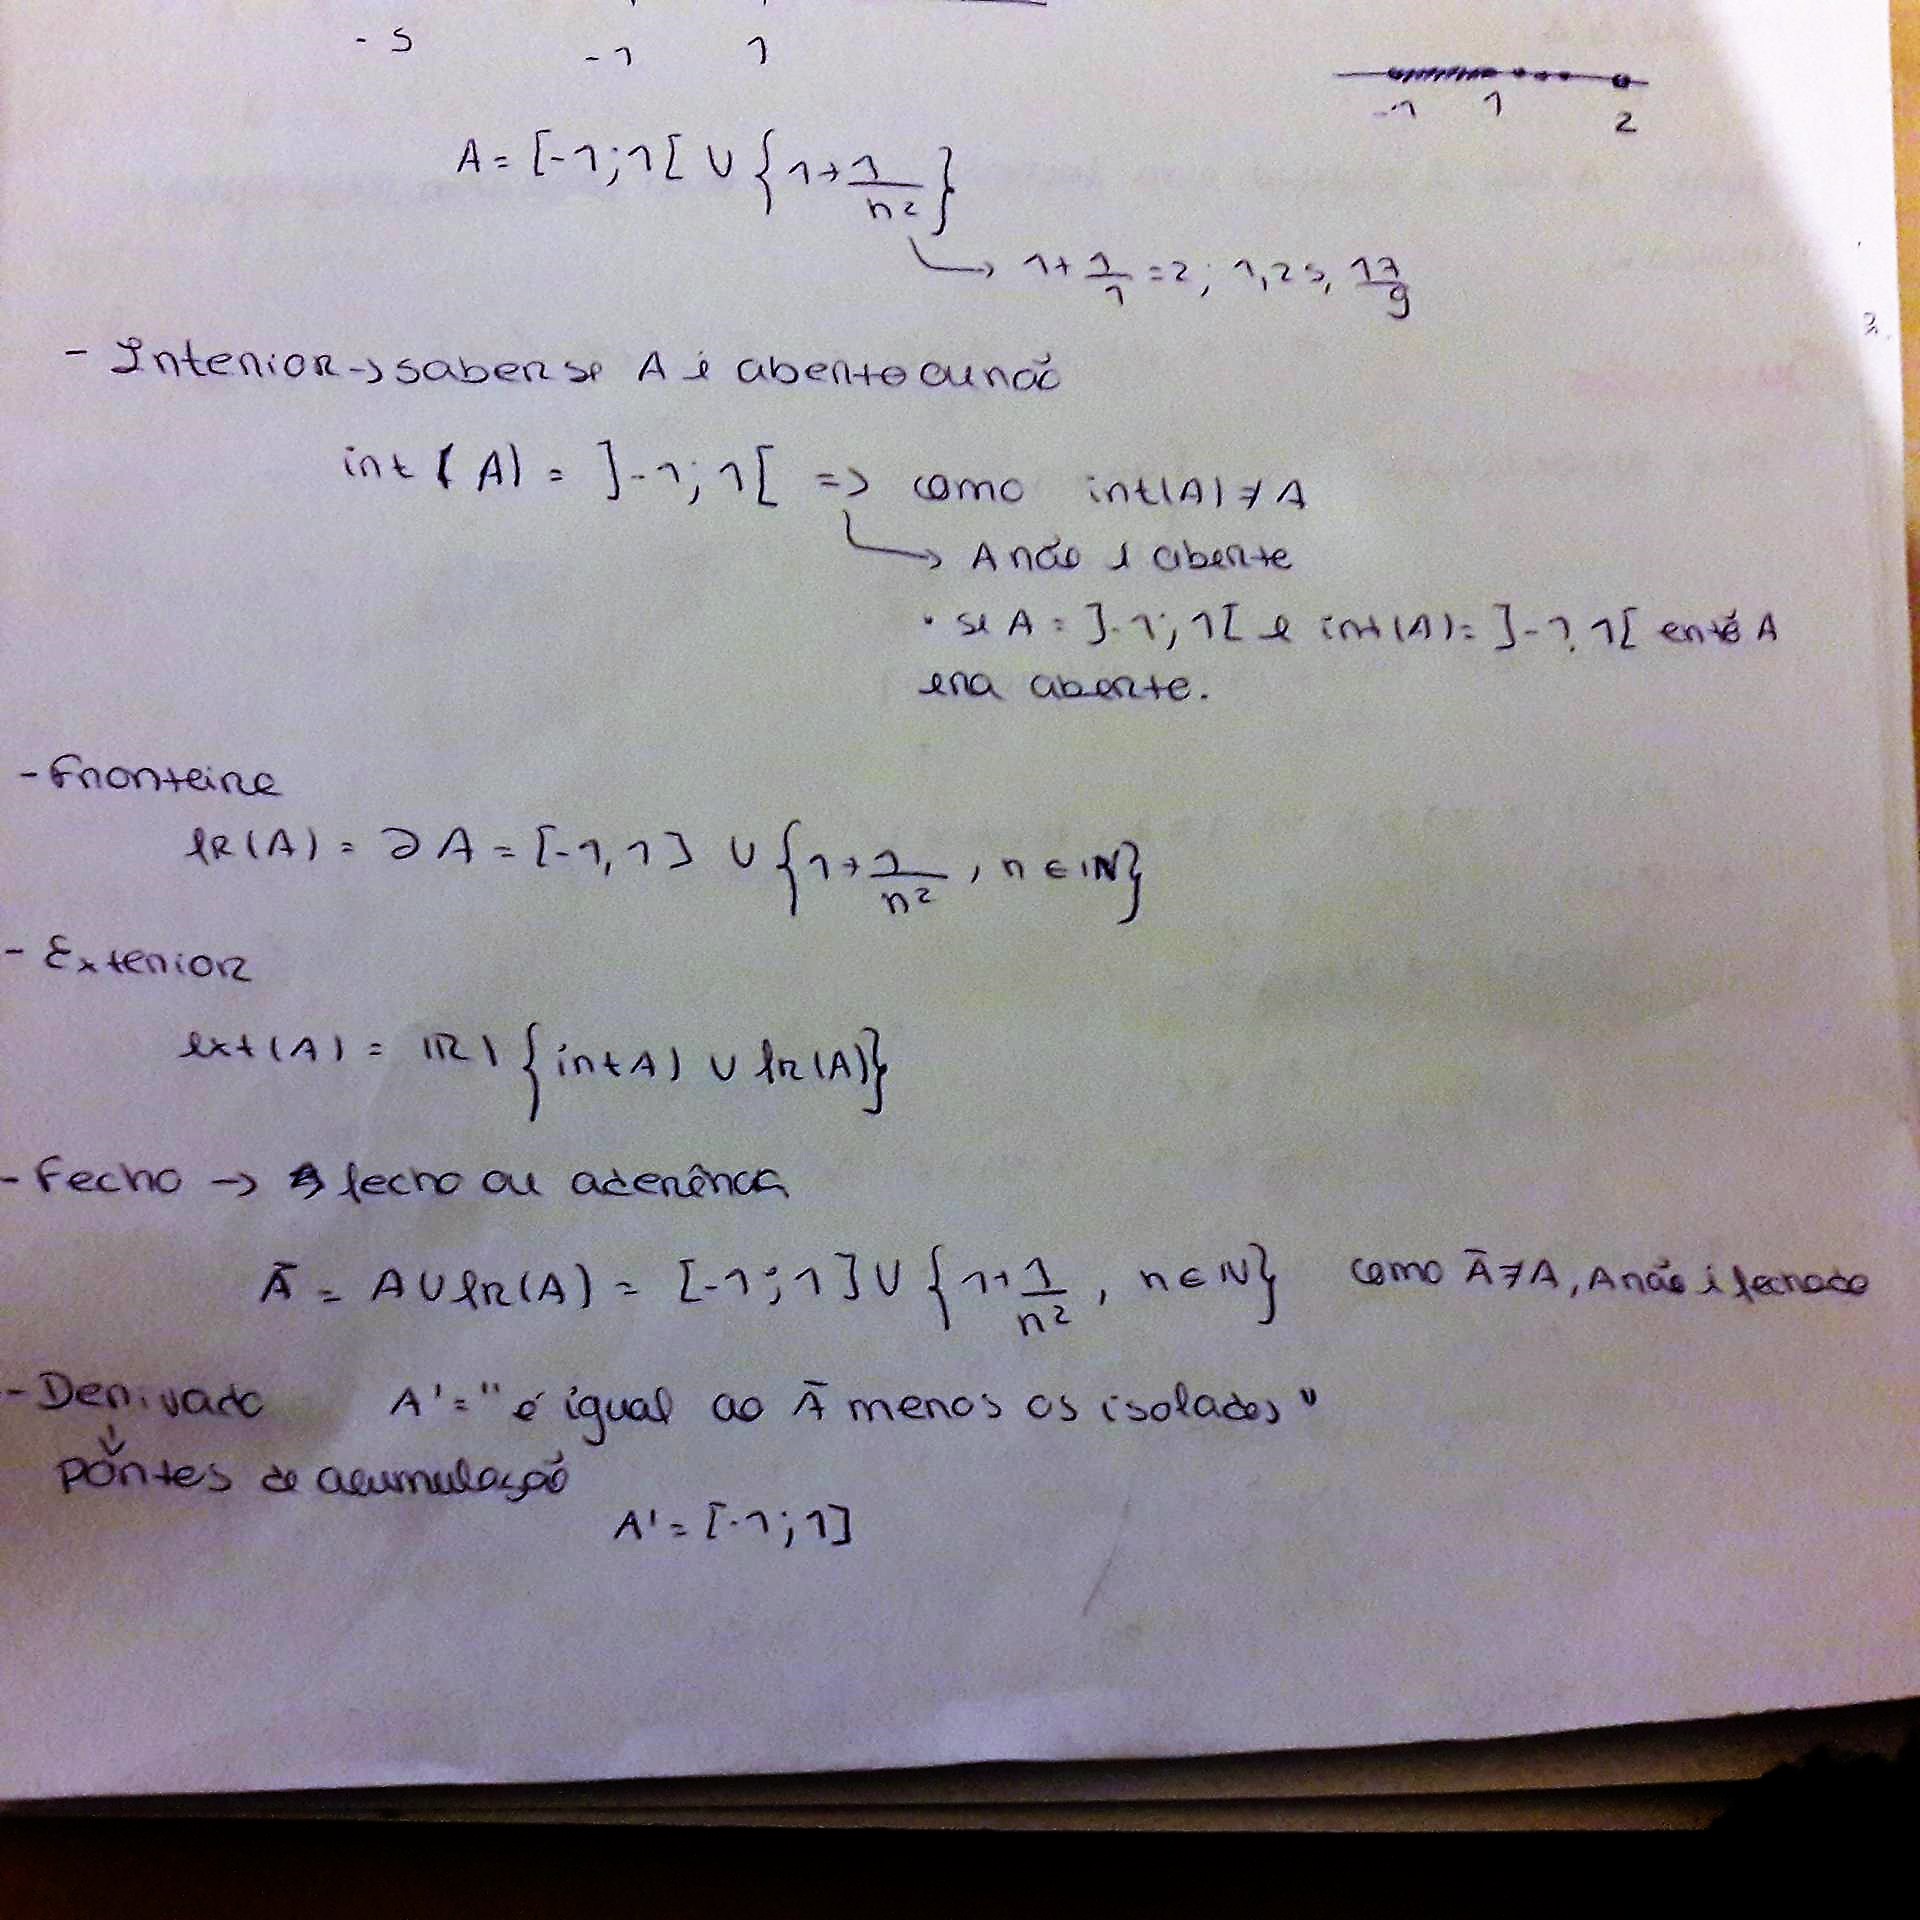 - 5 -1 1
-1 1 2
A = [-1;1[ ∪ {1+1/n²}
→ 1+1/1 = 2; 1,25, 17/9
- Interior → saber se A é aberto ou não
int(A) = ]-1;1[ => como int(A) ≠ A
→ A não é aberto
• se A = ]-1;1[ e int(A) = ]-1,1[ entã A
era aberto.
- Fronteira
fr(A) = ∂A = [-1,1] ∪ {1+1/n², n ∈ ℕ}
- Exterior
ext(A) = ℝ \ {int A) ∪ fr(A)}
- Fecho → fecho ou aderência
Ā = A ∪ fr(A) = [-1;1] ∪ {1+1/n², n ∈ ℕ} como Ā ≠ A, A não é fechado
- Derivado A' = "é igual ao Ā menos os isolados"
pontos de acumulação
A' = [-1;1]